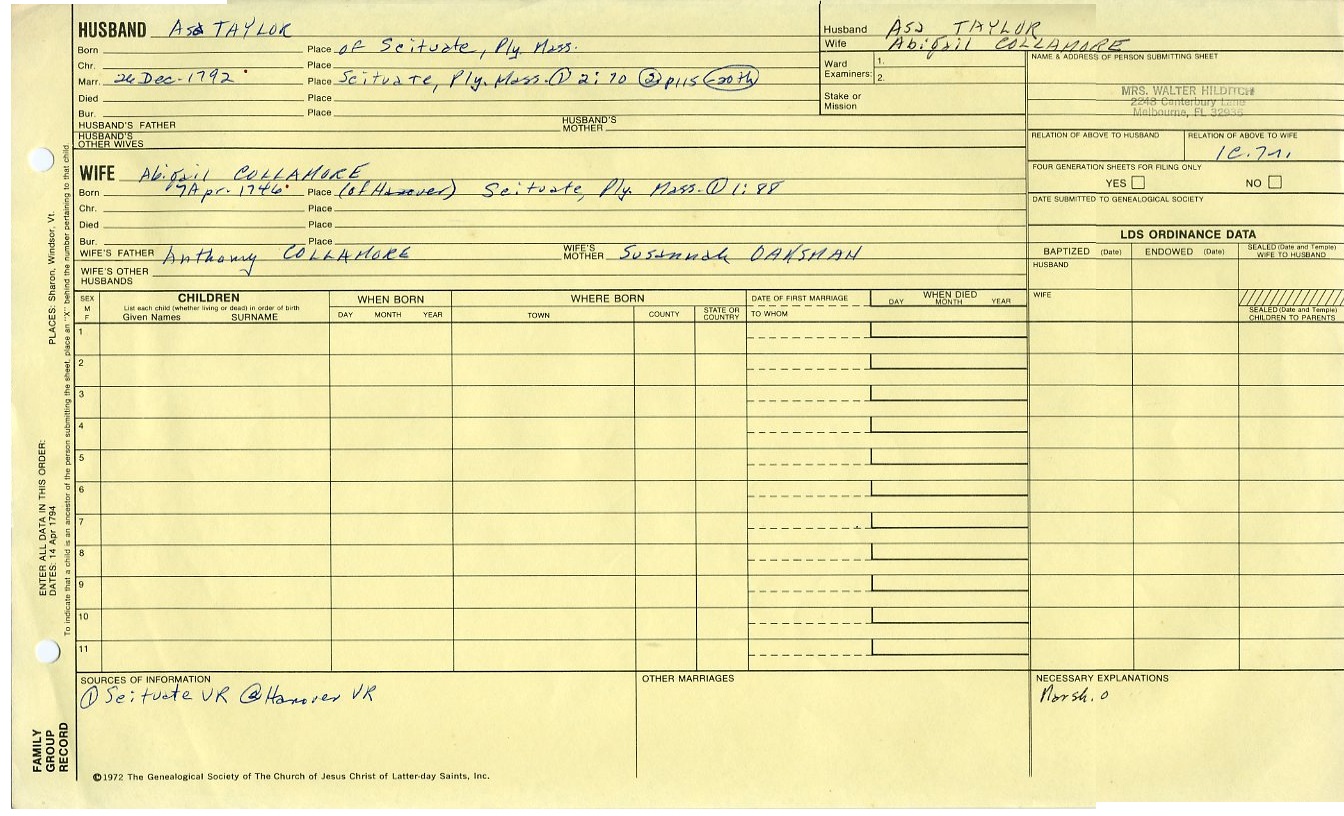 HUSBAND Asa TAYLOR
Born Place of Scituate, Ply. Mass.
Chr. Place
Marr. 26 Dec. 1792 Place Scituate, Ply. Mass. ① 2:70 ② p115 20th
Died Place
Bur. Place
HUSBAND'S FATHER HUSBAND'S MOTHER
HUSBAND'S OTHER WIVES
Husband Asa TAYLOR
Wife Abigail COLLAMORE
Ward Examiners: 1.
2.
Stake or Mission
NAME & ADDRESS OF PERSON SUBMITTING SHEET
MRS. WALTER HILDITCH
2248 Canterbury Lane
Melbourne, FL 32935
RELATION OF ABOVE TO HUSBAND RELATION OF ABOVE TO WIFE
1C.7r.
FOUR GENERATION SHEETS FOR FILING ONLY
YES NO
DATE SUBMITTED TO GENEALOGICAL SOCIETY
WIFE Abigail COLLAMORE
Born 7 Apr. 1746 Place (of Hanover) Scituate, Ply. Mass. ① 1:88
Chr. Place
Died Place
Bur. Place
WIFE'S FATHER Anthony COLLAMORE WIFE'S MOTHER Susannah OAKSMAN
WIFE'S OTHER HUSBANDS
LDS ORDINANCE DATA
BAPTIZED (Date) ENDOWED (Date) SEALED (Date and Temple) WIFE TO HUSBAND
HUSBAND
WIFE
SEALED (Date and Temple) CHILDREN TO PARENTS
SEX M F
CHILDREN
List each child (whether living or dead) in order of birth
Given Names SURNAME
WHEN BORN
DAY MONTH YEAR
WHERE BORN
TOWN COUNTY STATE OR COUNTRY
DATE OF FIRST MARRIAGE
TO WHOM
WHEN DIED
DAY MONTH YEAR
1
2
3
4
5
6
7
8
9
10
11
SOURCES OF INFORMATION
① Scituate VR ② Hanover VR
OTHER MARRIAGES
NECESSARY EXPLANATIONS
Marsh. 0
©1972 The Genealogical Society of The Church of Jesus Christ of Latter-day Saints, Inc.
FAMILY GROUP RECORD
ENTER ALL DATA IN THIS ORDER:
DATES: 14 Apr 1794
PLACES: Sharon, Windsor, Vt.
To indicate that a child is an ancestor of the person submitting the sheet, place an "X" behind the number pertaining to that child.